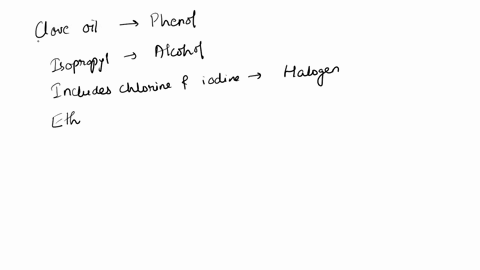 Clove oil → Phenol
Isopropyl → Alcohol
Includes chlorine & iodine → Halogen
Eth